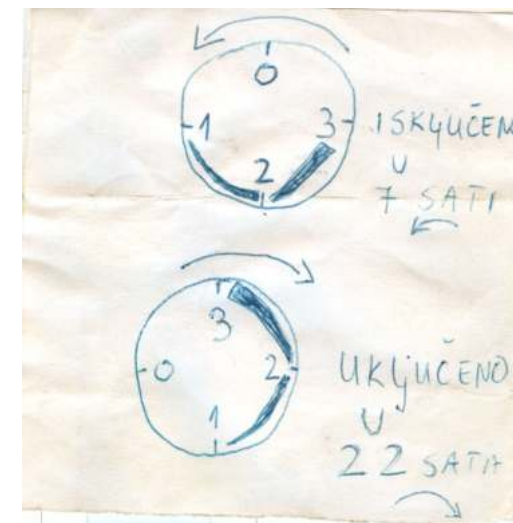 0
1
3
2
ISKLJUČEN
U
7 SATI
3
0
2
1
UKLJUČENO
U
22 SATA